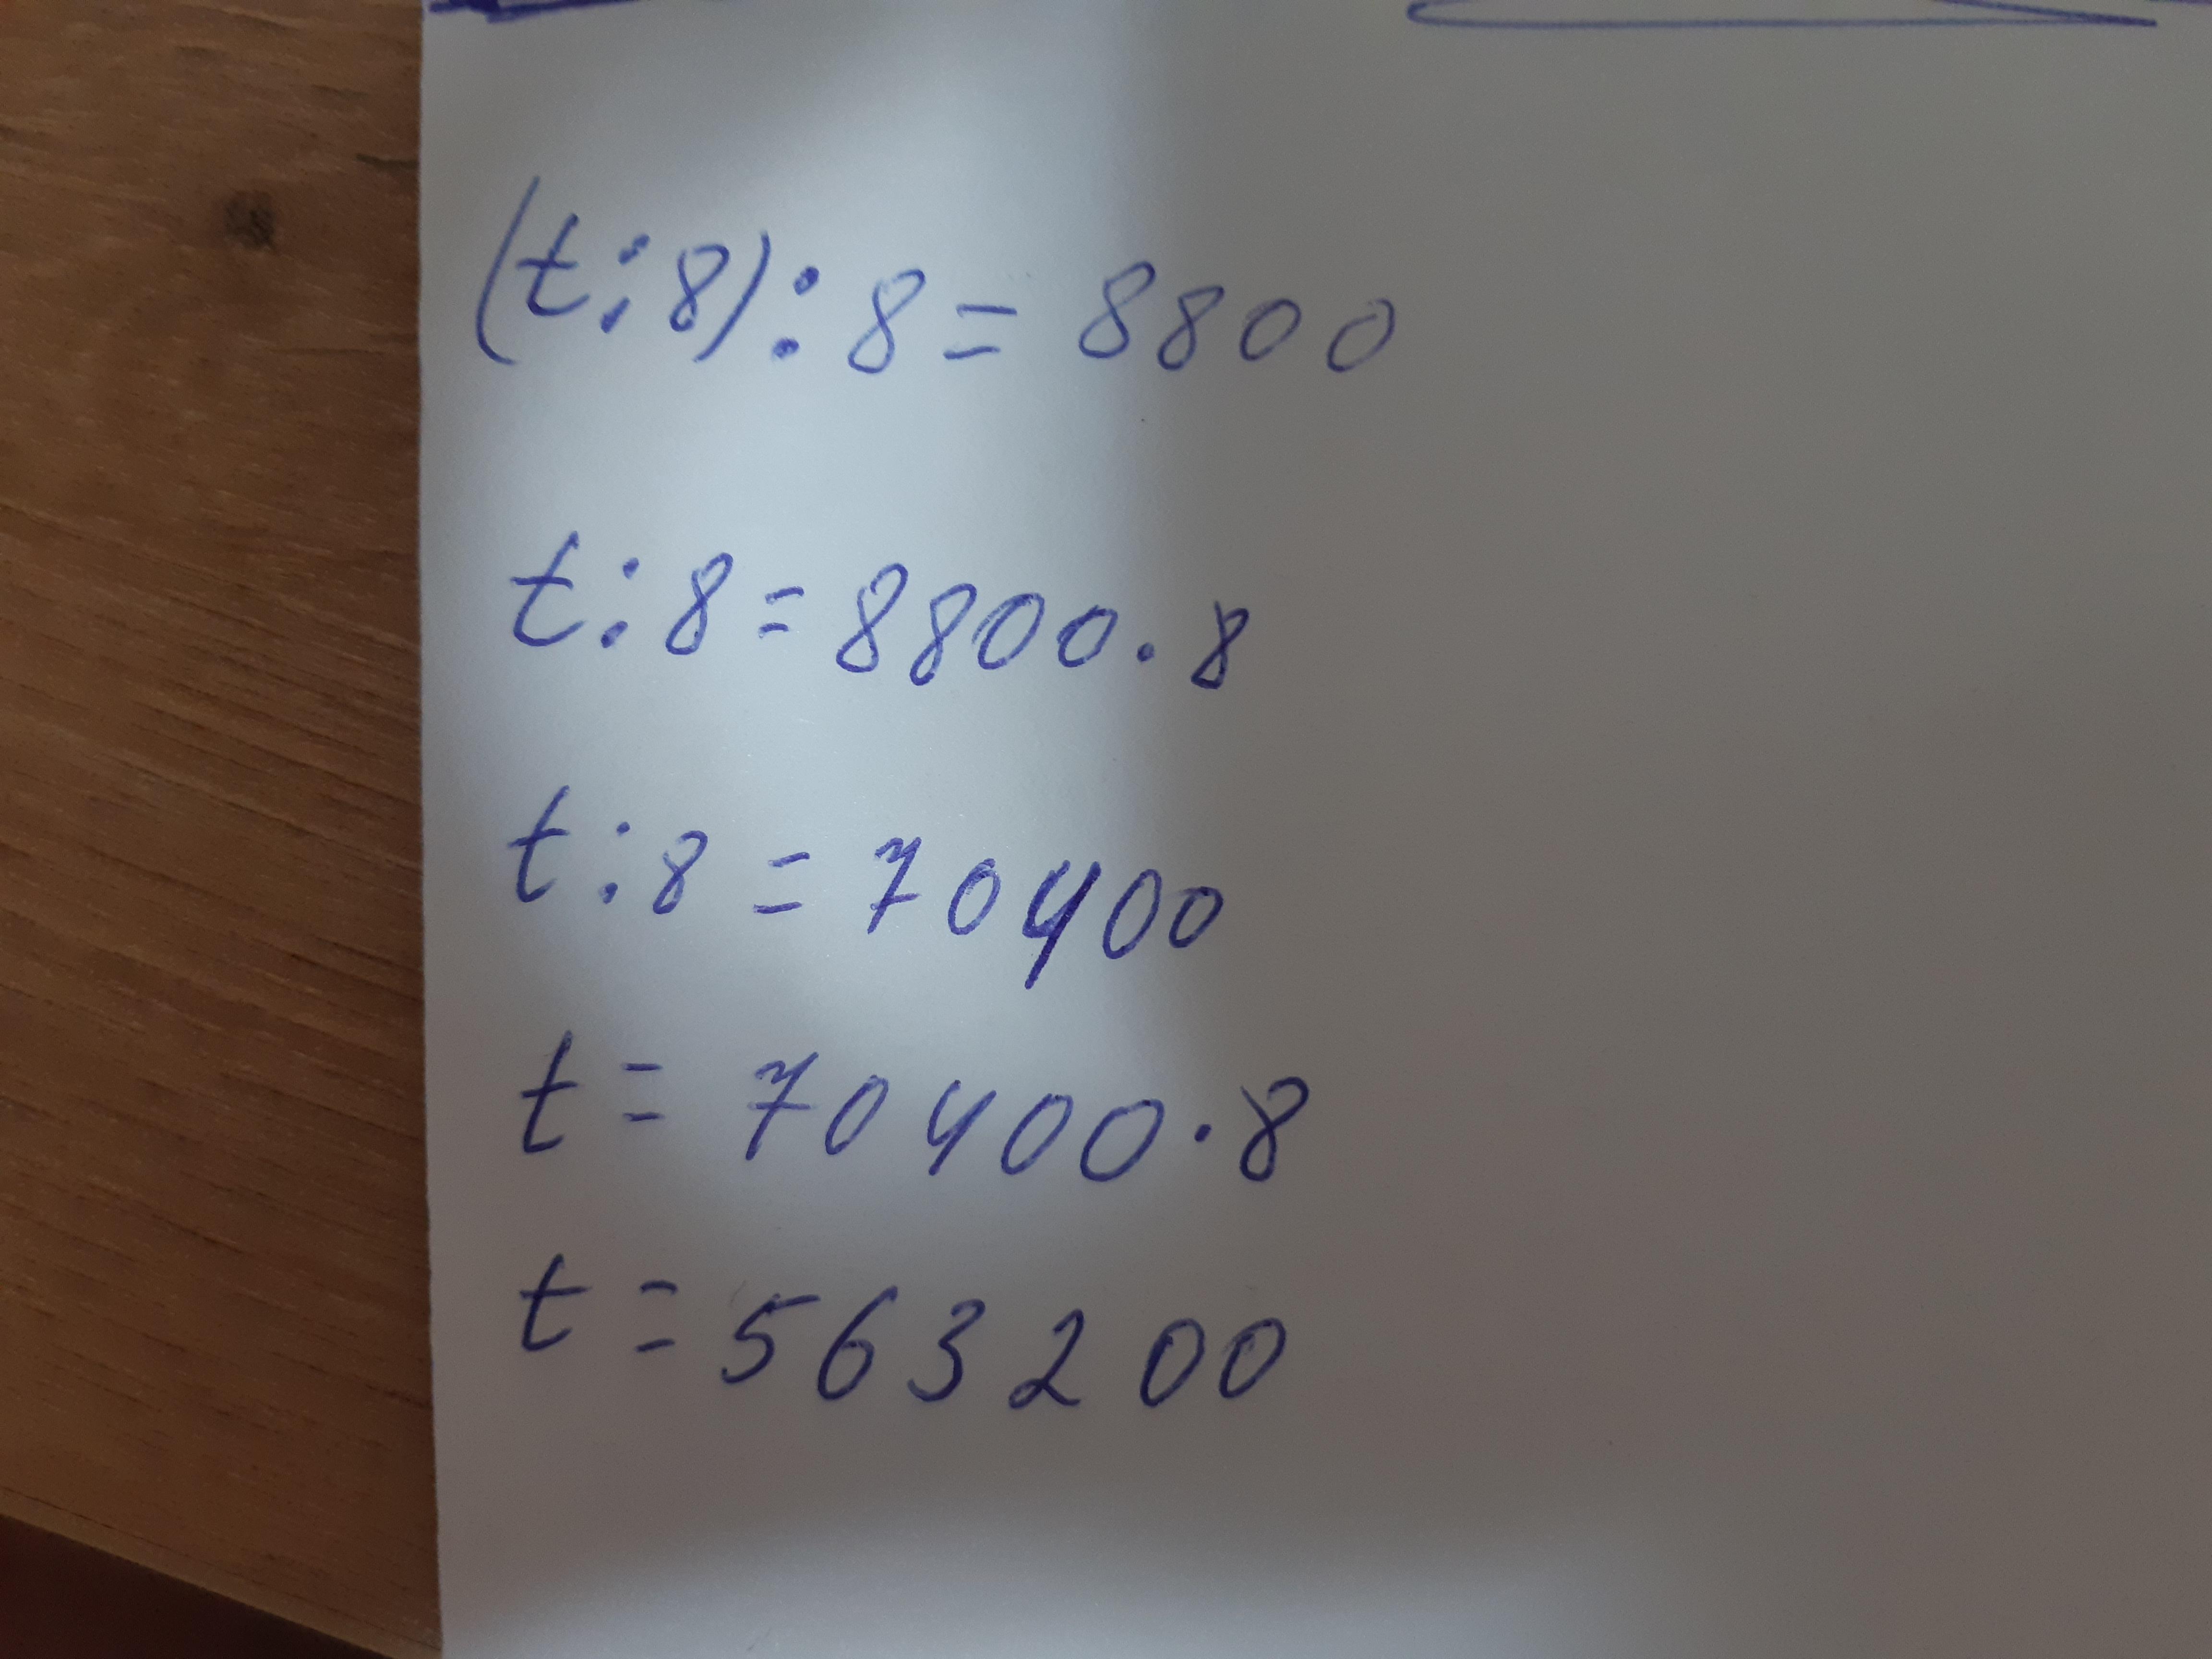 (t:8):8=8800
t:8=8800·8
t:8=70400
t=70400·8
t=563200